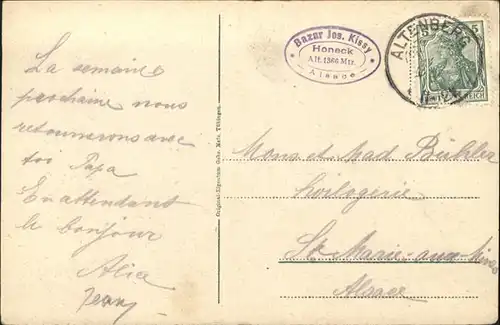 La semaine
prochaine nous
retournerons avec
ton Papa
En attendant
le bonjour
Alice
Jean
Original-Eigentum Gebr. Metz, Tübingen.
Bazar Jos. Kissy
Honeck
Alt. 1366 Mtr.
Alsace
ALTENBERG
5
REICH
Mons et Mad Bühler
horlogerie
Ste Marie-aux-Mines
Alsace